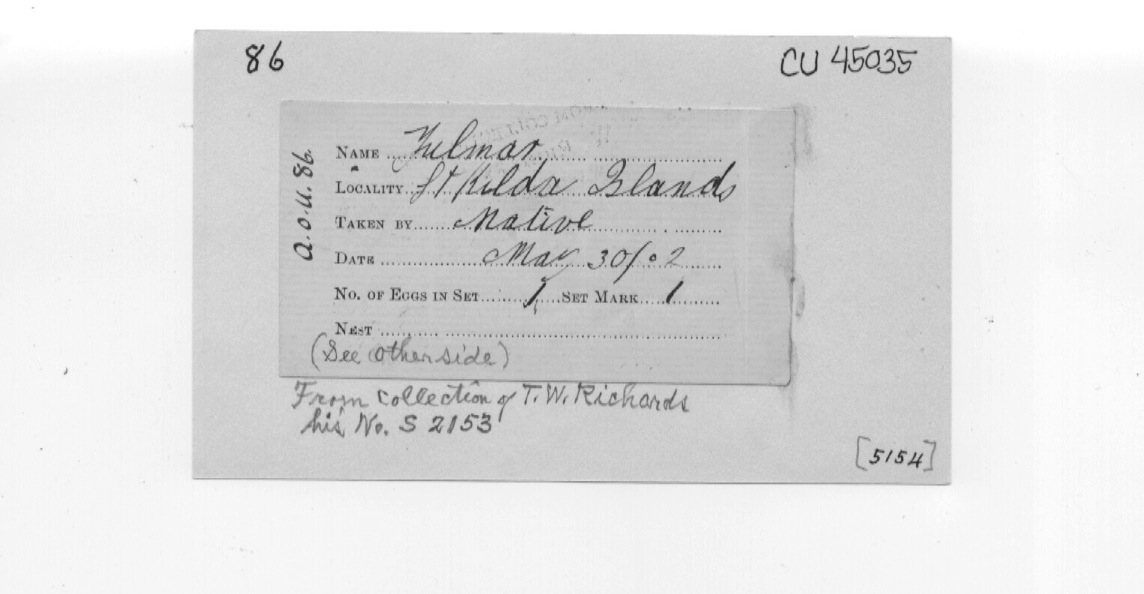 86
CU 45035
a.o.u. 86.
NAME Fulmar
LOCALITY St Kilda Islands
TAKEN BY Native
DATE May 30/02
NO. OF EGGS IN SET 1 SET MARK 1
NEST
(See other side)
From collection of T. W. Richards
his No. S 2153
[5154]